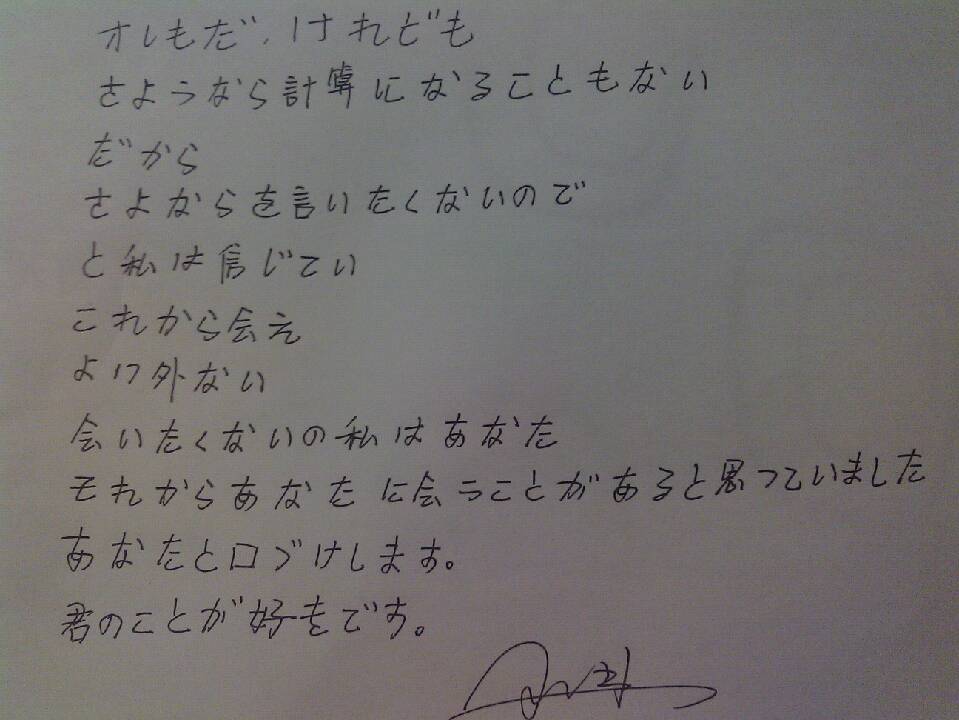 オレもだ、けれども
さようなら計算になることもない
だから
さよからを言いたくないので
と私は信じてい
これから会え
よけ外ない
会いたくないの私はあなた
それからあなたに会うことがあると思っていました
あなたと口づけします。
君のことが好きです。